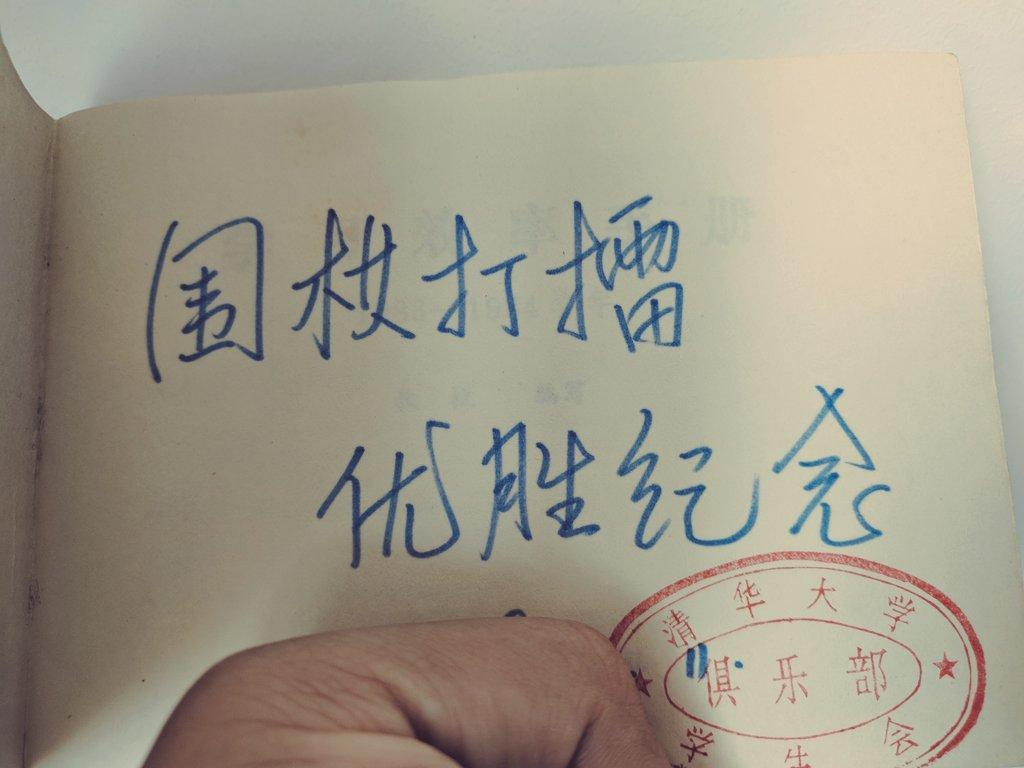 围棋打擂
优胜纪念
清华大学
俱乐部
学生会